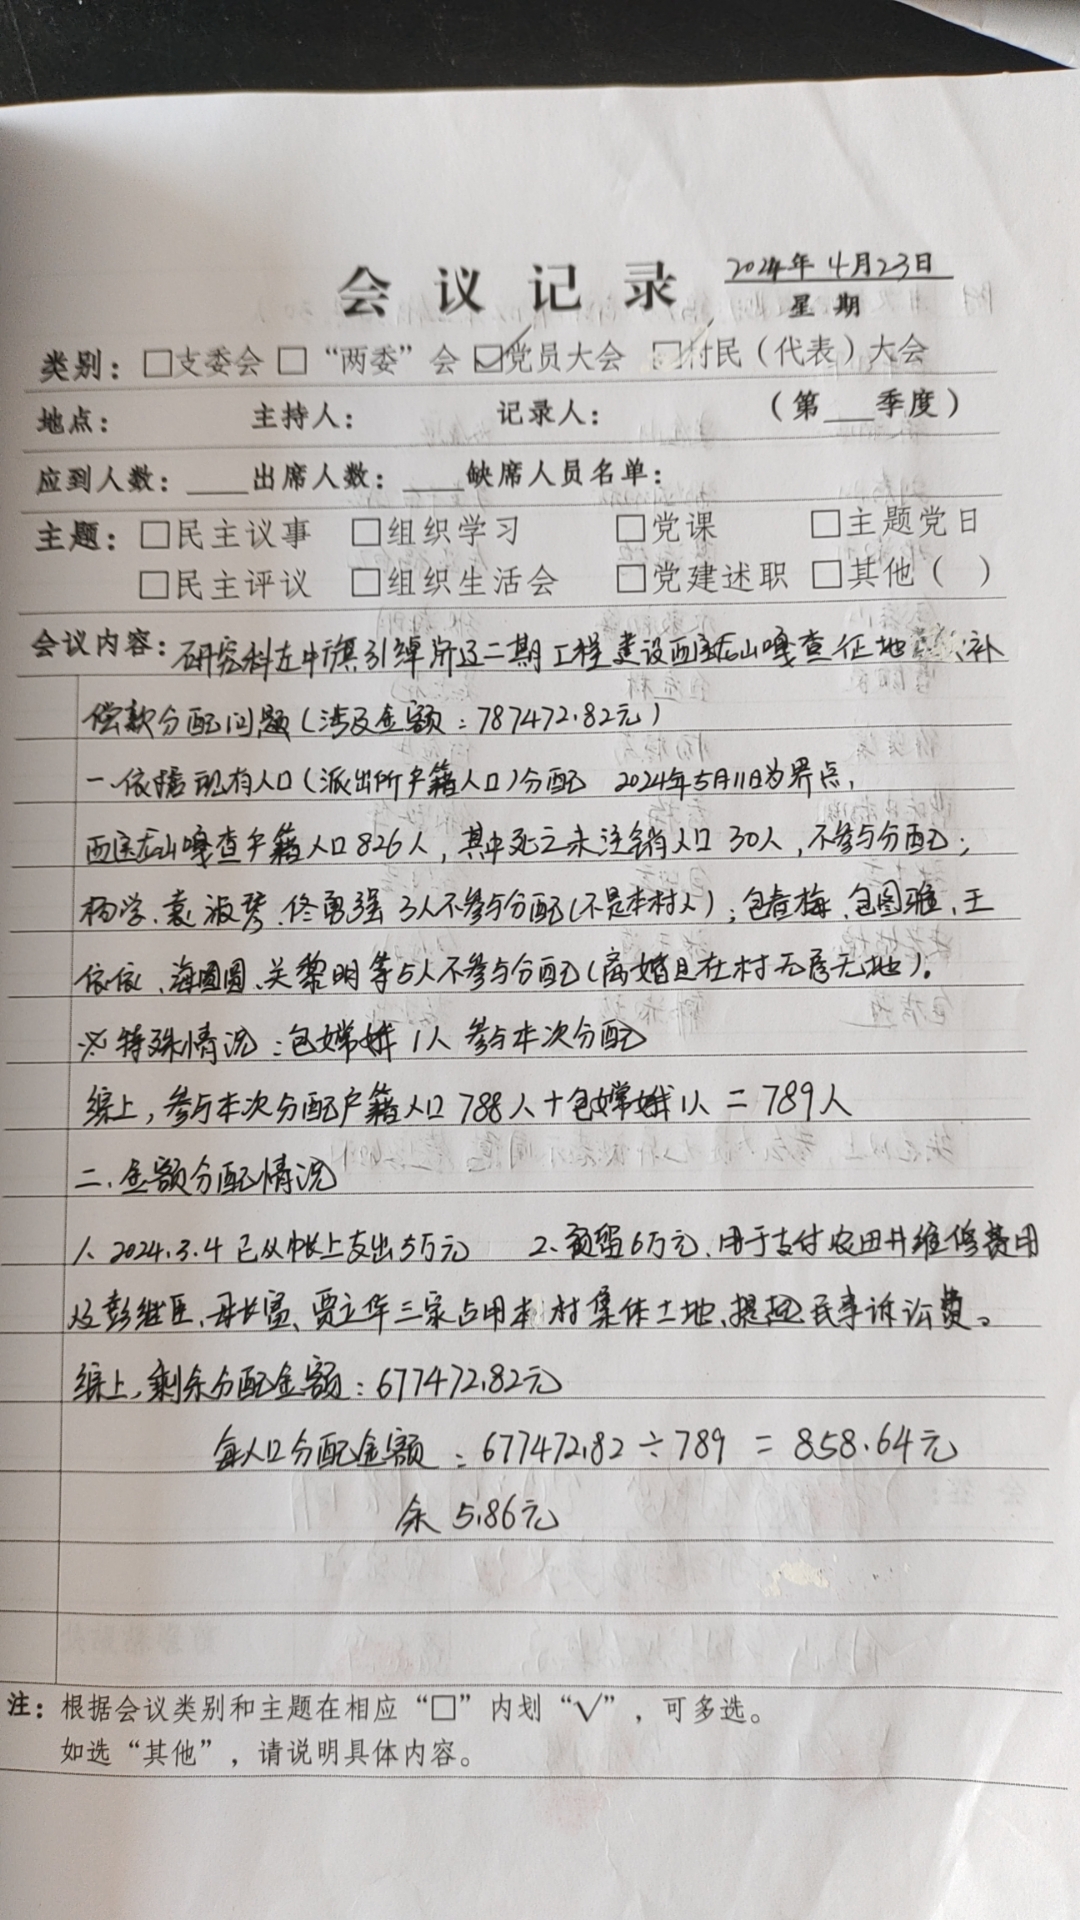 会议记录 2024年4月23日
星期
类别：□支委会 □“两委”会 ☑党员大会 □村民（代表）大会
地点： 主持人： 记录人： （第___季度）
应到人数：___出席人数：___缺席人员名单：
主题：□民主议事 □组织学习 □党课 □主题党日
□民主评议 □组织生活会 □党建述职 □其他（ ）
会议内容：研究科左中旗引绰济辽二期工程建设西 山嘎查征地 补
偿款分配问题（涉及金额：787472.82元）
一.依据现有人口（派出所户籍人口）分配 2024年5月11日为界点，
西 山嘎查户籍人口826人，其中死亡未注销人口30人，不参与分配；
杨学、袁淑琴、佟勇强3人不参与分配（不是本村人）；包春梅、包图雅、王
依依、海圆圆、关黎明等5人不参与分配（离婚且在村无房无地）。
※特殊情况：包嫦娥1人参与本次分配
综上，参与本次分配户籍人口788人＋包嫦娥1人＝789人
二.金额分配情况
1、2024.3.4已从帐上支出5万元 2、预留6万元，用于支付农田井维修费用
及彭继臣、 长富、贾立华三家占用本村集体土地，提起民事诉讼费。
综上，剩余分配金额：677472.82元
每人口分配金额：677472.82÷789＝858.64元
余5.86元
注：根据会议类别和主题在相应“□”内划“√”，可多选。
如选“其他”，请说明具体内容。